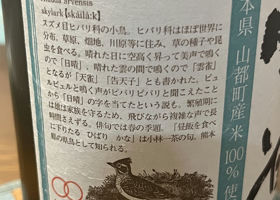 Alauda arvensis
skylark [skáilà:k]
スズメ目ヒバリ科の小鳥。ヒバリ科はほぼ世界に
分布。草原、畑地、川原等に住み、草の種子や昆
虫を食べる。晴れた日に空高く昇って美声で鳴く
ので「日晴」、晴れた雲の間で鳴くので「雲雀」
となるが「天雀」「告天子」とも書かれた。ピュ
ルピュルと鳴く声がピバリピバリと聞こえたこと
から「日晴」の字を当てたという説も。繁殖期に
雄は雌や家族を守るため、飛びながら複雑な声で長
時間さえずる。俳句では春の季題。「昼飯を食べ
に下りたる ひばり かな」は小林一茶の句。熊本
県の県鳥として知られる。
本県 山都町産米 100% 使